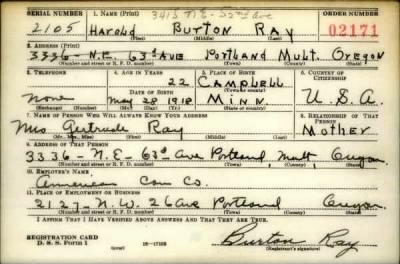 SERIAL NUMBER 1. NAME (Print) 3415 N.E - 52nd ave ORDER NUMBER
2105 Harold Burton Ray 02171
(First) (Middle) (Last)
2. ADDRESS (Print)
3336 - N.E. 63rd Ave Portland Mult. Oregon
(Number and street or R. F. D. number) (Town) (County) (State)
3. TELEPHONE 4. AGE IN YEARS 5. PLACE OF BIRTH 6. COUNTRY OF CITIZENSHIP
22 Campbell
DATE OF BIRTH (Town or county)
None May 28 1918 Minn. U.S.A.
(Exchange) (Number) (Mo.) (Day) (Yr.) (State or country)
7. NAME OF PERSON WHO WILL ALWAYS KNOW YOUR ADDRESS 8. RELATIONSHIP OF THAT PERSON
Mrs Gertrude Ray Mother
(Mr., Mrs., Miss) (First) (Middle) (Last)
9. ADDRESS OF THAT PERSON
3336 - N.E - 63rd Ave Portland, Mult, Oregon
(Number and street or R. F. D. number) (Town) (County) (State)
10. EMPLOYER'S NAME
American Can Co.
11. PLACE OF EMPLOYMENT OR BUSINESS
2127 - N.W. 26 Ave Portland Oregon
(Number and street or R. F. D. number) (Town) (County) (State)
I AFFIRM THAT I HAVE VERIFIED ABOVE ANSWERS AND THAT THEY ARE TRUE.
REGISTRATION CARD
D. S. S. Form 1 16-17105 Burton Ray
(Registrant's signature)